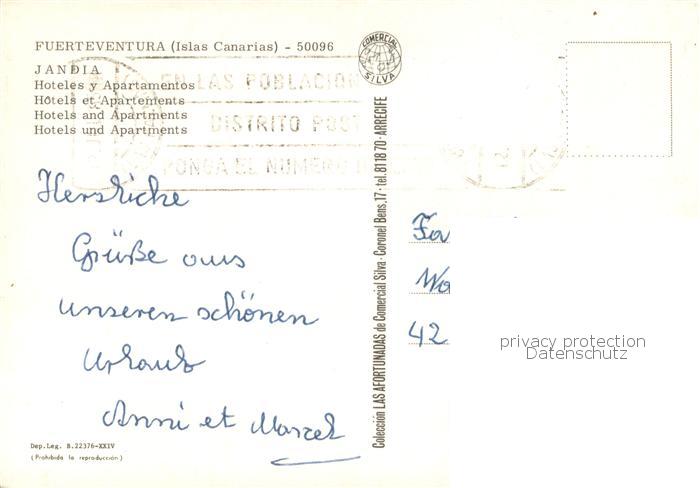 FUERTEVENTURA (Islas Canarias) - 50096
JANDIA
Hoteles y Apartamentos
Hôtels et Apartements
Hotels and Apartments
Hotels und Apartments
EN LAS POBLACION
DISTRITO POST
PONGA EL NUMERO
COMERCIAL SILVA
Herzliche
Grüße aus
unseren schönen
Urlaub
Anni et Marcel
Dep. Leg. B.22376-XXIV
(Prohibida la reproducción)
Colección LAS AFORTUNADAS de Comercial Silva - Coronel Bens, 17 - tel. 81 18 70 - ARRECIFE
Fa
Wo
42
privacy protection
Datenschutz